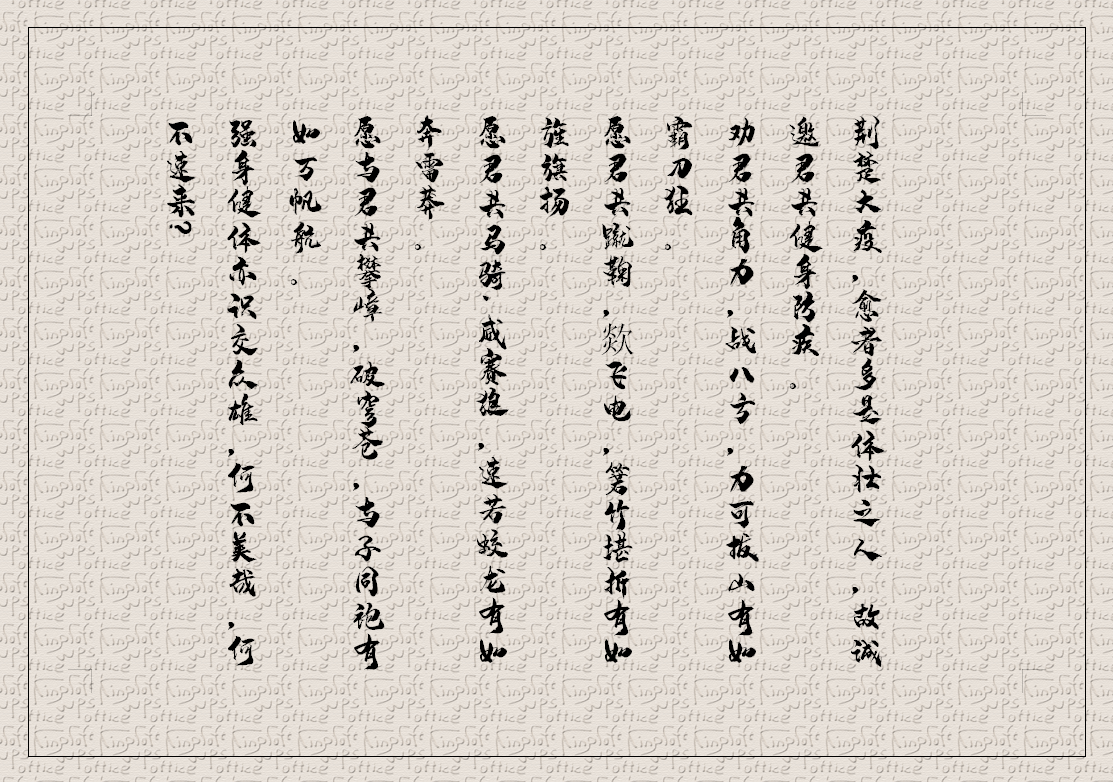 荆楚大疫，愈者多是体壮之人，故诚
邀君共健身防疾。
劝君共角力，战八方，力可拔山有如
霸刀狂。
愿君共蹴鞠，欻飞电，箬竹堪折有如
旌旗扬。
愿君共马骑，咸赛骢，速若蛟龙有如
奔雷莽。
愿与君共攀嶂，破穹苍，与子同袍有
如万帆航。
强身健体亦识交众雄，何不美哉，何
不速来？